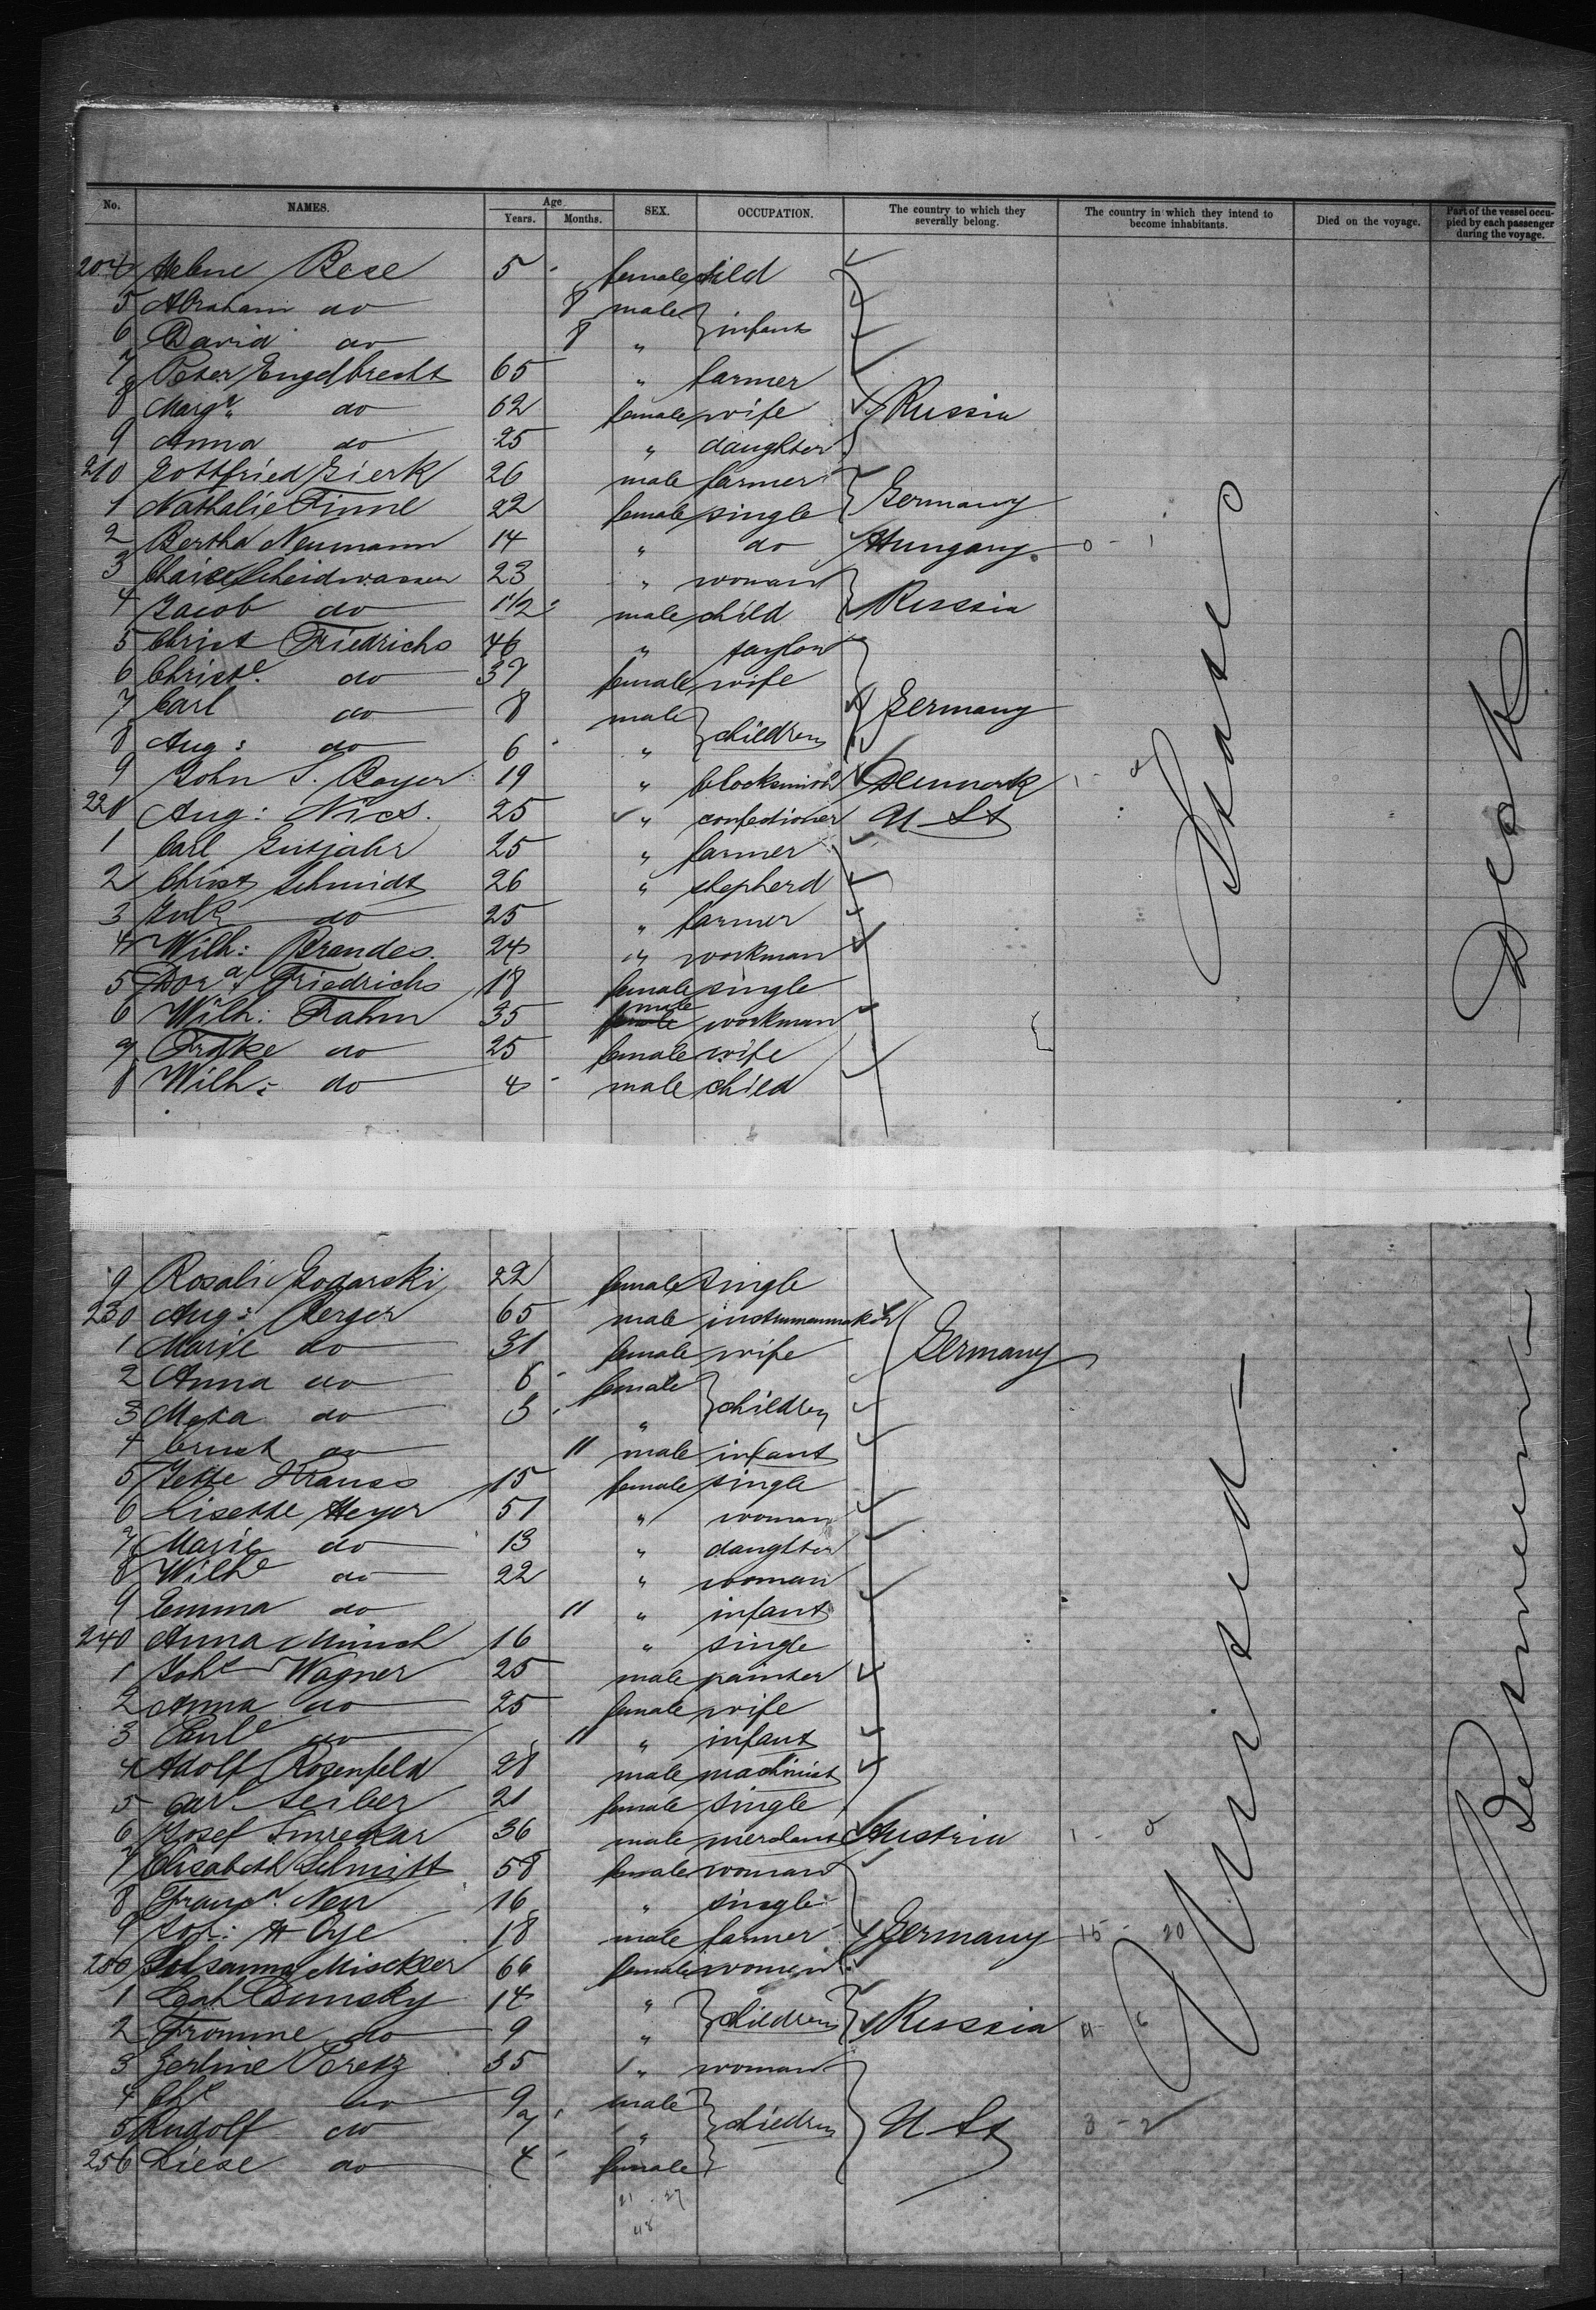 No. NAMES. Age Years. Months. SEX. OCCUPATION. The country to which they severally belong. The country in which they intend to become inhabitants. Died on the voyage. Part of the vessel occupied by each passenger during the voyage.
204 Helene Bese 5 female child
5 Abraham do 8 male } infant
6 David do 8 "
7 Peter Engelbrecht 65 " farmer
8 Marg. do 62 female wife } Russia
9 Anna do 25 " daughter
210 Gottfried Gierk 26 male farmer } Germany
1 Nathalie Finne 22 female single
2 Bertha Neumann 14 " do Hungary 0 - 1
3 Scheidwasser 23 " woman } Russia
4 Jacob do 1 1/2 male child
5 Christ Friedrichs 46 " taylor
6 Christe. do 37 female wife } Germany
7 Carl do 8 male } children
8 Aug: do 6 "
9 John S. Boyer 19 " Denmark 1 - 0
220 Aug: Nies. 25 " confectioner U. St
1 Carl Gutjahr 25 " farmer
2 Christ Schmidt 26 " shepherd
3 do 25 " farmer
4 Wilh: Brandes. 24 " workman
5 Dora Friedrichs 18 female single
6 Wilh: Frahm 35 male workman
7 do 25 female wife
8 Wilh: do 4 male child
States
Deck
9 Rosalie 22 female single
230 Aug: Berger 65 male } Germany
1 Marie do 31 female wife
2 Anna do 6 female } children
3 Meta do 3 "
4 Ernst do 11 male infant
5 Jette Krauss 15 female single
6 Lisette Heyer 51 " woman
7 Marie do 13 " daughter
8 Wilhe do 22 " woman
9 Emma do 11 " infant
240 Anna Münch 16 " single
1 Wagner 25 male painter
2 Anna do 25 female wife
3 do 11 " infant
4 Adolf Rosenfeld 28 male machinist
5 Seiber 21 female single
6 Josef Smreckar 36 male Austria 1 - 0
7 Elisabeth Schmitt 58 female woman
8 16 " single
9 Joh: H Oye 18 male farmer } Germany 15 - 20
250 66 female women
1 14 " } children } Russia 4 6
2 Fromme do 9 "
3 Gerline Peretz 35 " woman
4 do 9 male } children } U. St 3 - 2
5 Rudolf do 7 "
256 Liese do 4 female
21 . 27
48
United
Between